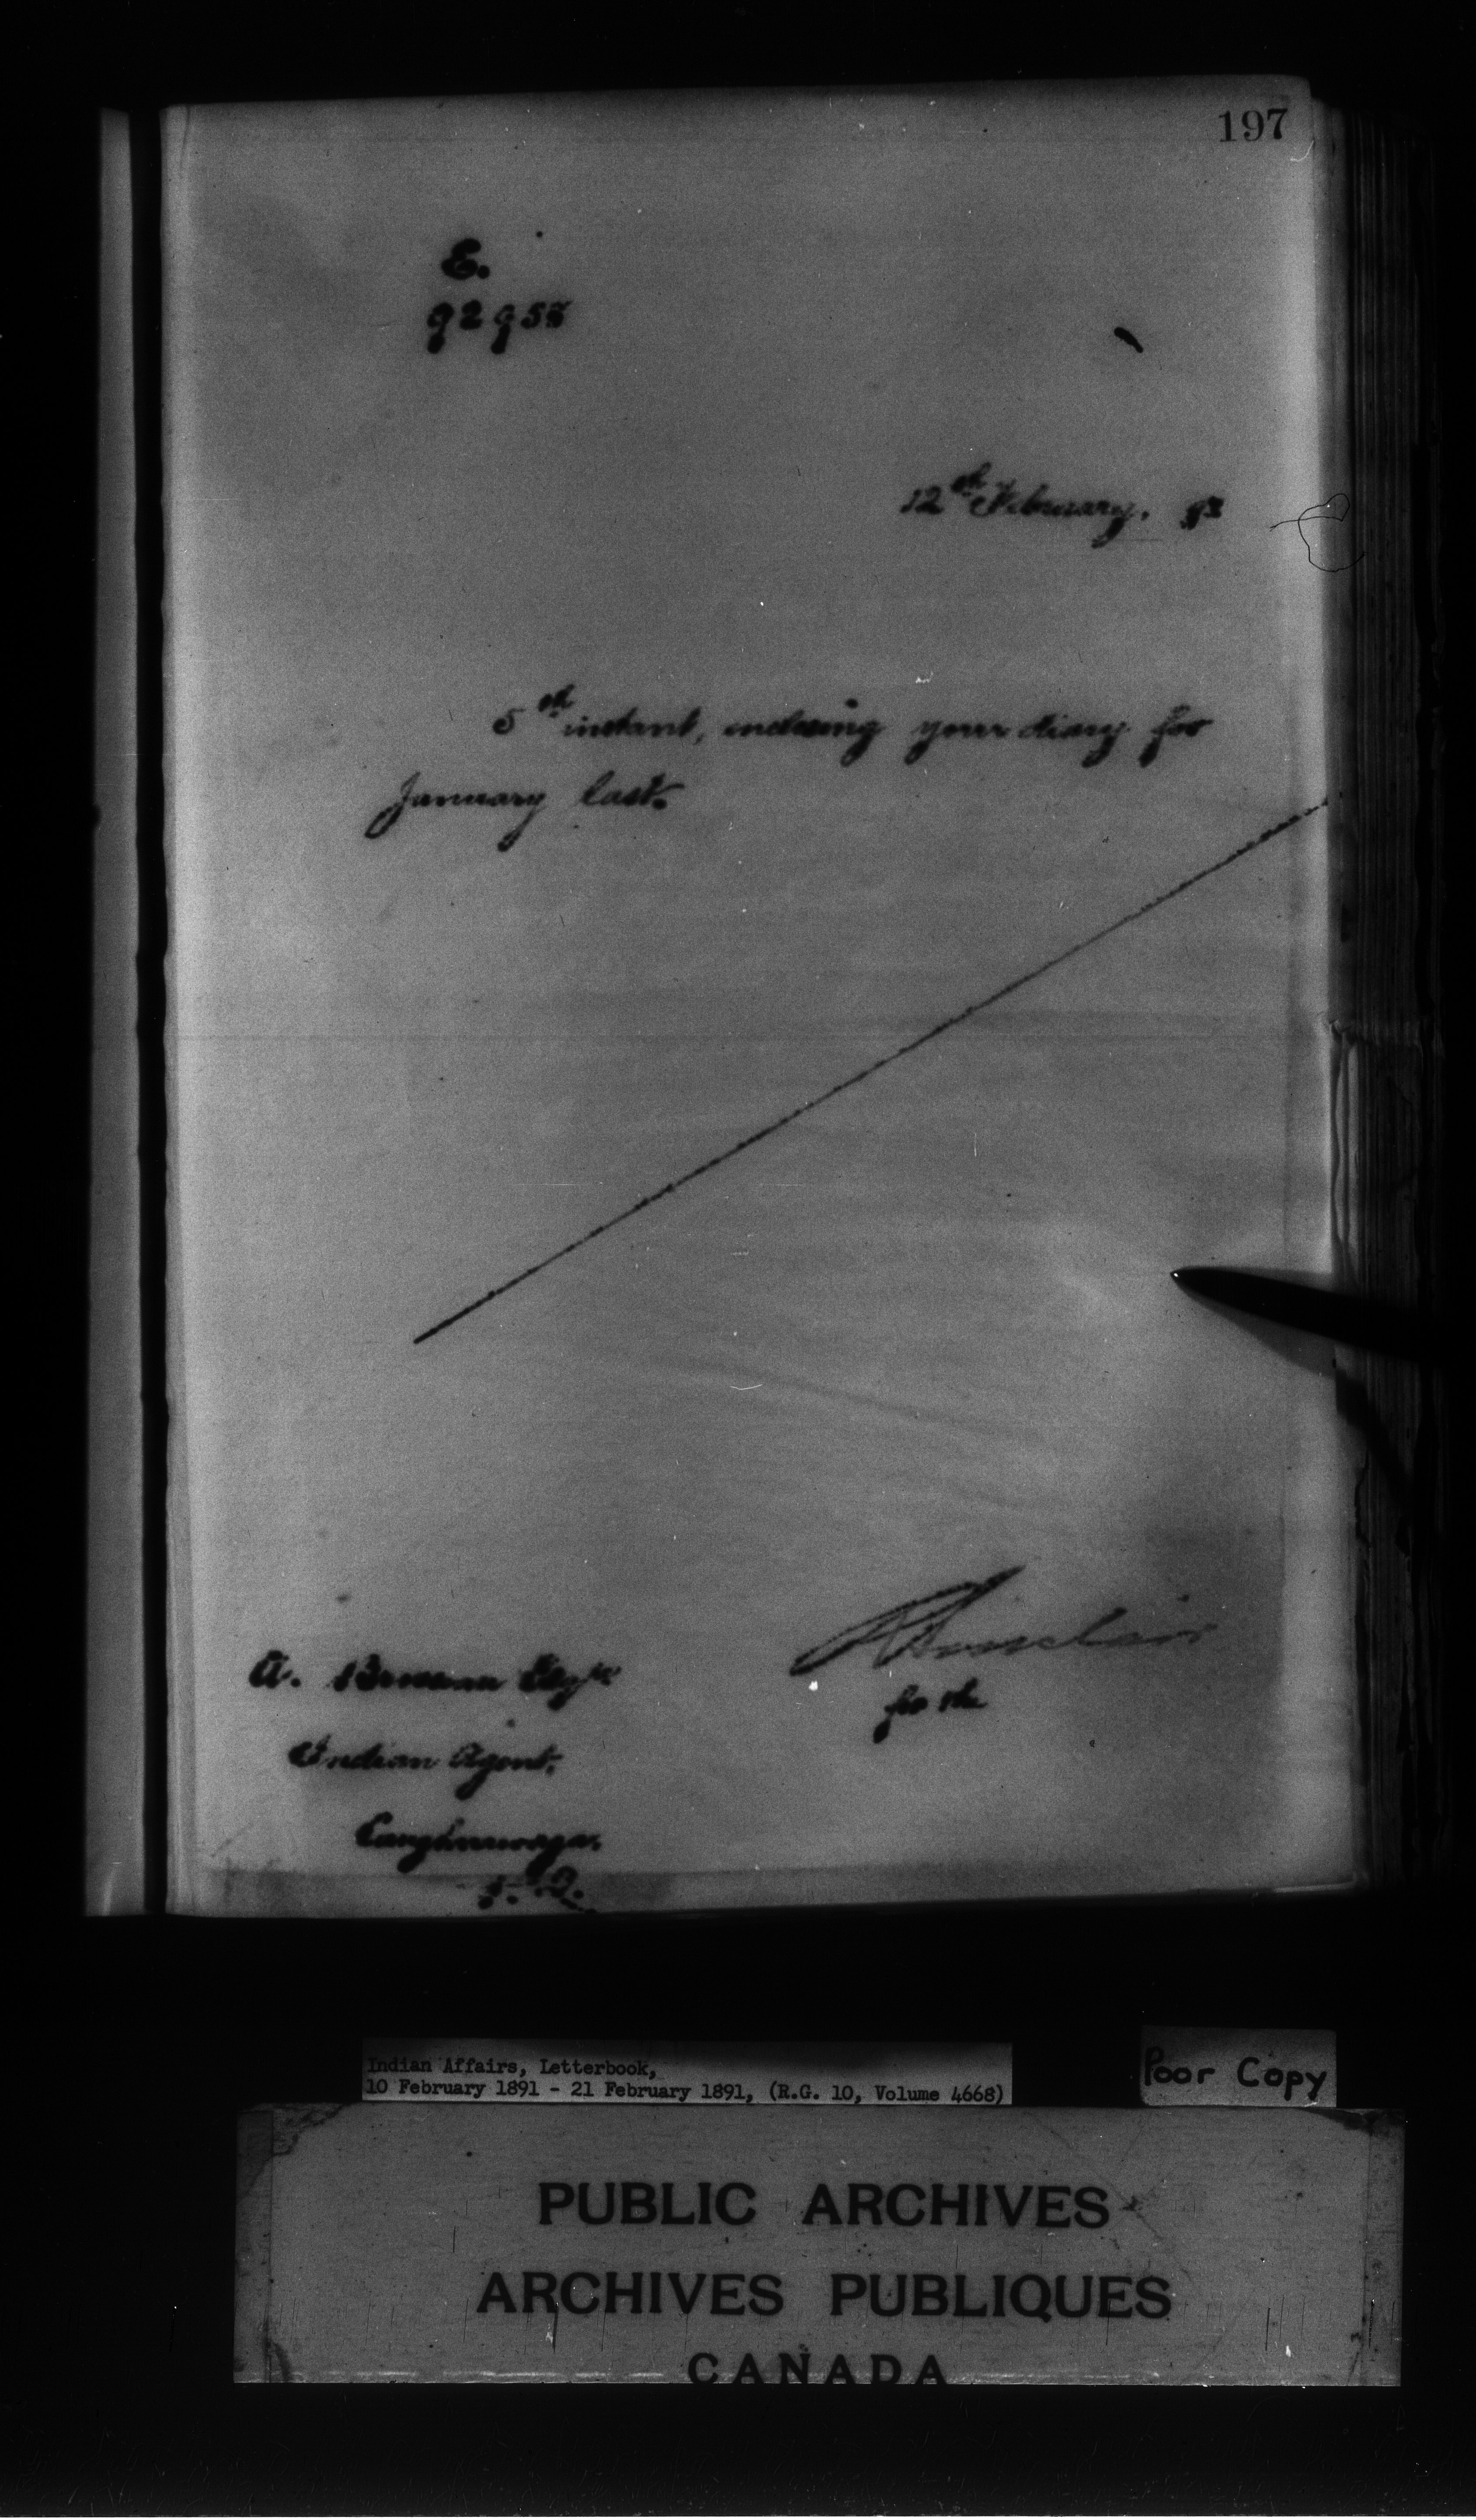 197
E.
92955
12th February. 91
5th instant, enclosing your diary for
January last.
A. Brosseau Esqre
R Sinclair
for the
Indian Agent.
Caughnawaga.
P. Q.
Indian Affairs, Letterbook,
10 February 1891 - 21 February 1891, (R.G. 10, Volume 4668)
Poor Copy
PUBLIC ARCHIVES
ARCHIVES PUBLIQUES
CANADA